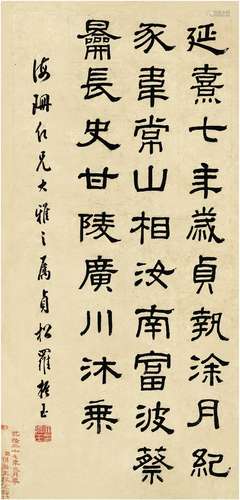 延熹七年歲貞執涂月紀
豕韋常山相汝南富波蔡
長史甘陵廣川沐乘
海珊仁兄大雅之屬貞松羅振玉